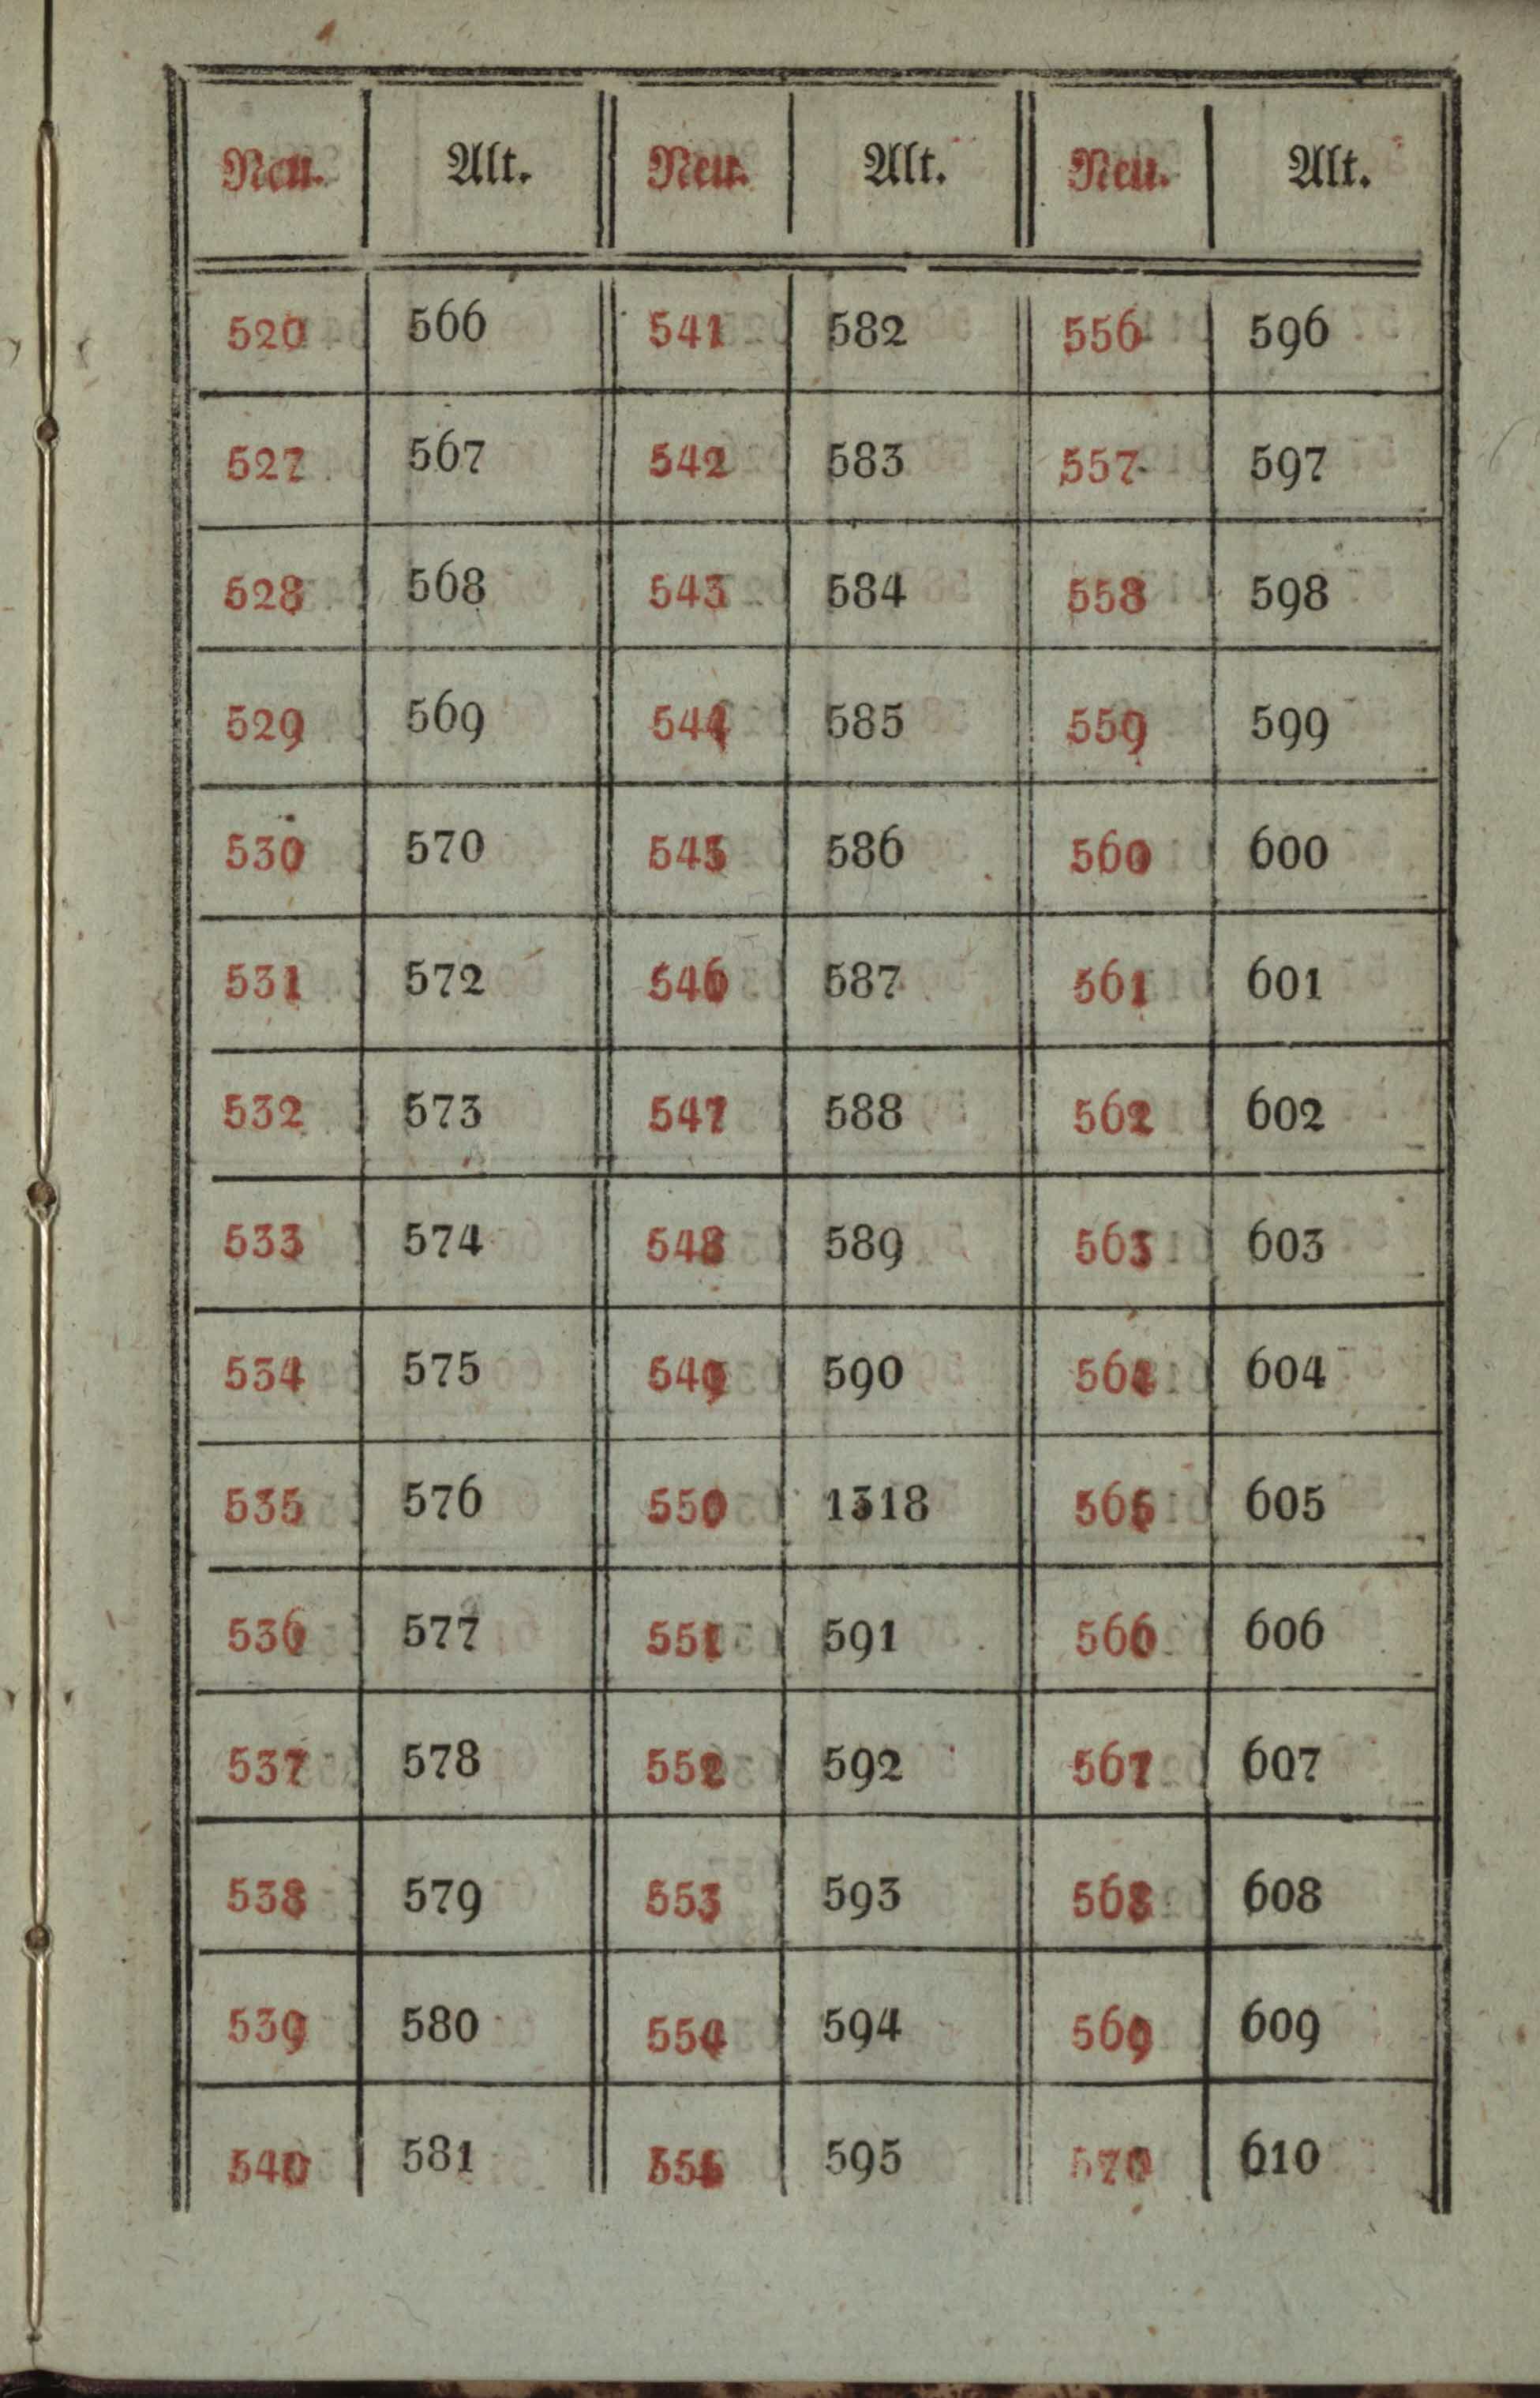 Neu. Alt. Neu. Alt. Neu. Alt.
520 566 541 582 556 596
527 567 542 583 557 597
528 568 543 584 558 598
529 569 544 585 559 599
530 570 545 586 560 600
531 572 546 587 561 601
532 573 547 588 562 602
533 574 548 589 563 603
534 575 549 590 564 604
535 576 550 1318 565 605
536 577 551 591 566 606
537 578 552 592 567 607
538 579 553 593 568 608
539 580 554 594 569 609
540 581 555 595 570 610